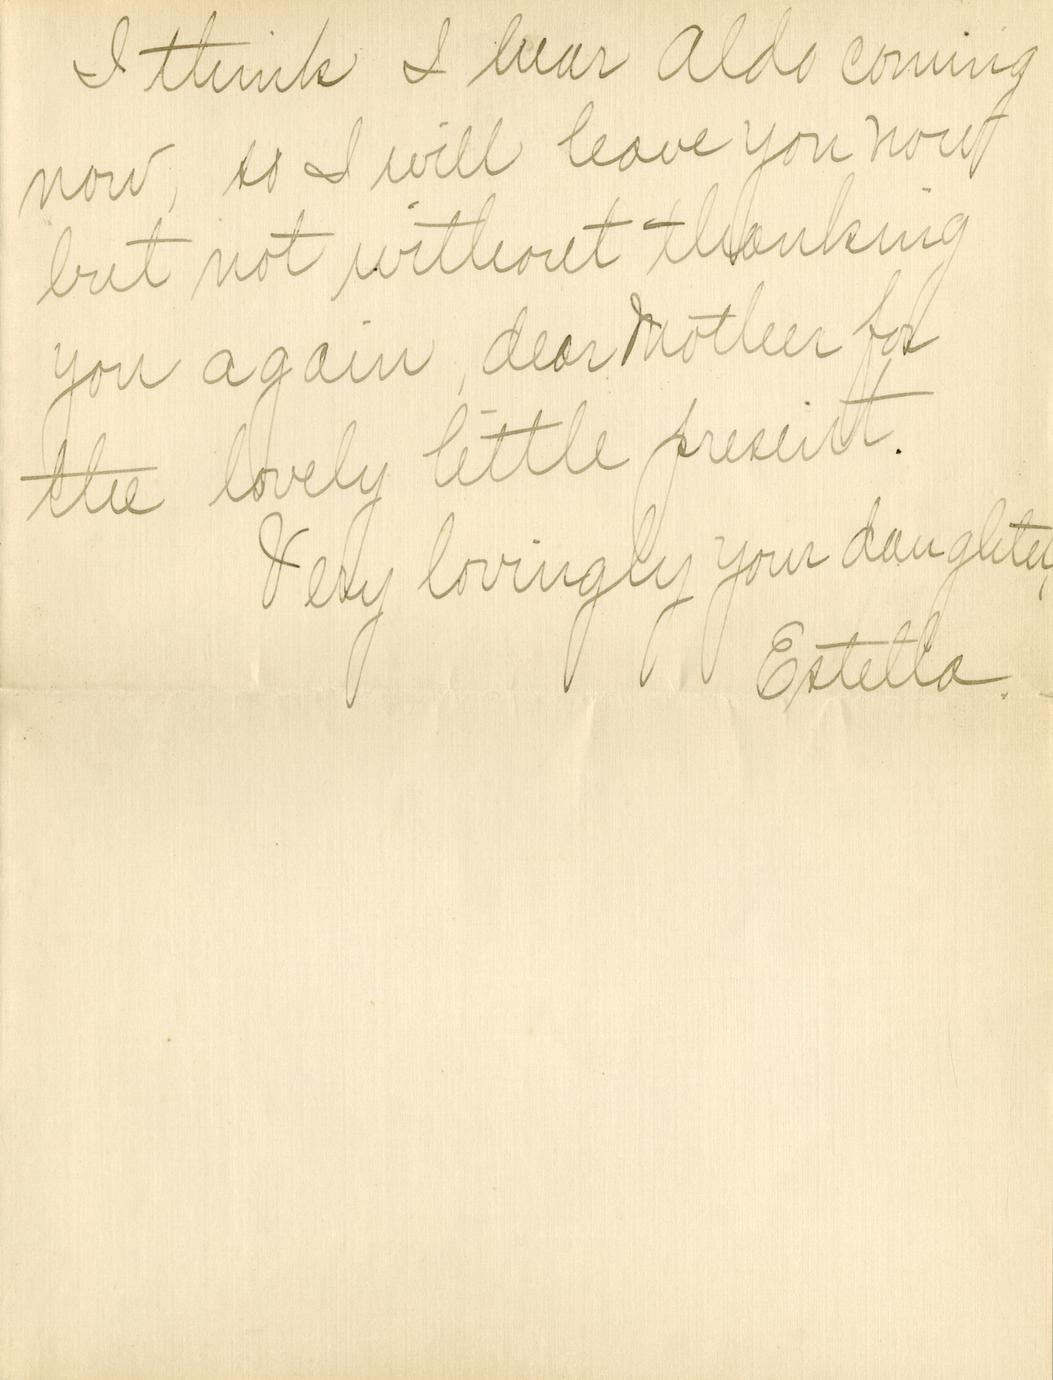 I think I hear Aldo coming
now, so I will leave you now
but not without thanking
you again, dear Mother for
the lovely little present.
Very lovingly your daughter,
Estella.